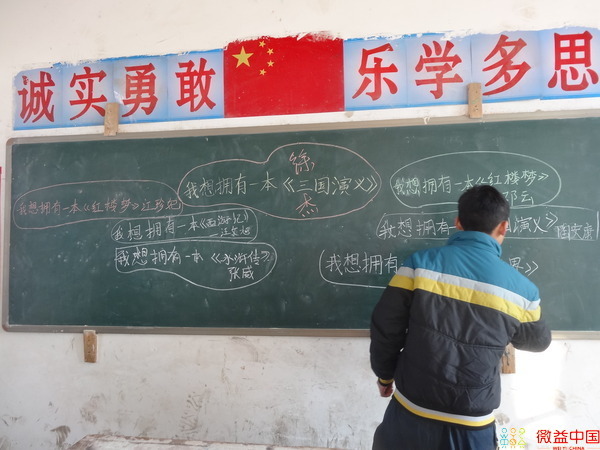 诚实勇敢
乐学多思
我想拥有一本《红楼梦》
我想拥有一本《三国演义》
徐杰
我想拥有一本《红楼梦》
邓云
我想拥有一本《西游记》
我想拥有一
国演义》
我想拥有一本《水浒传》
张威
我想拥有一
》
微益中国
WEIYI CHINA